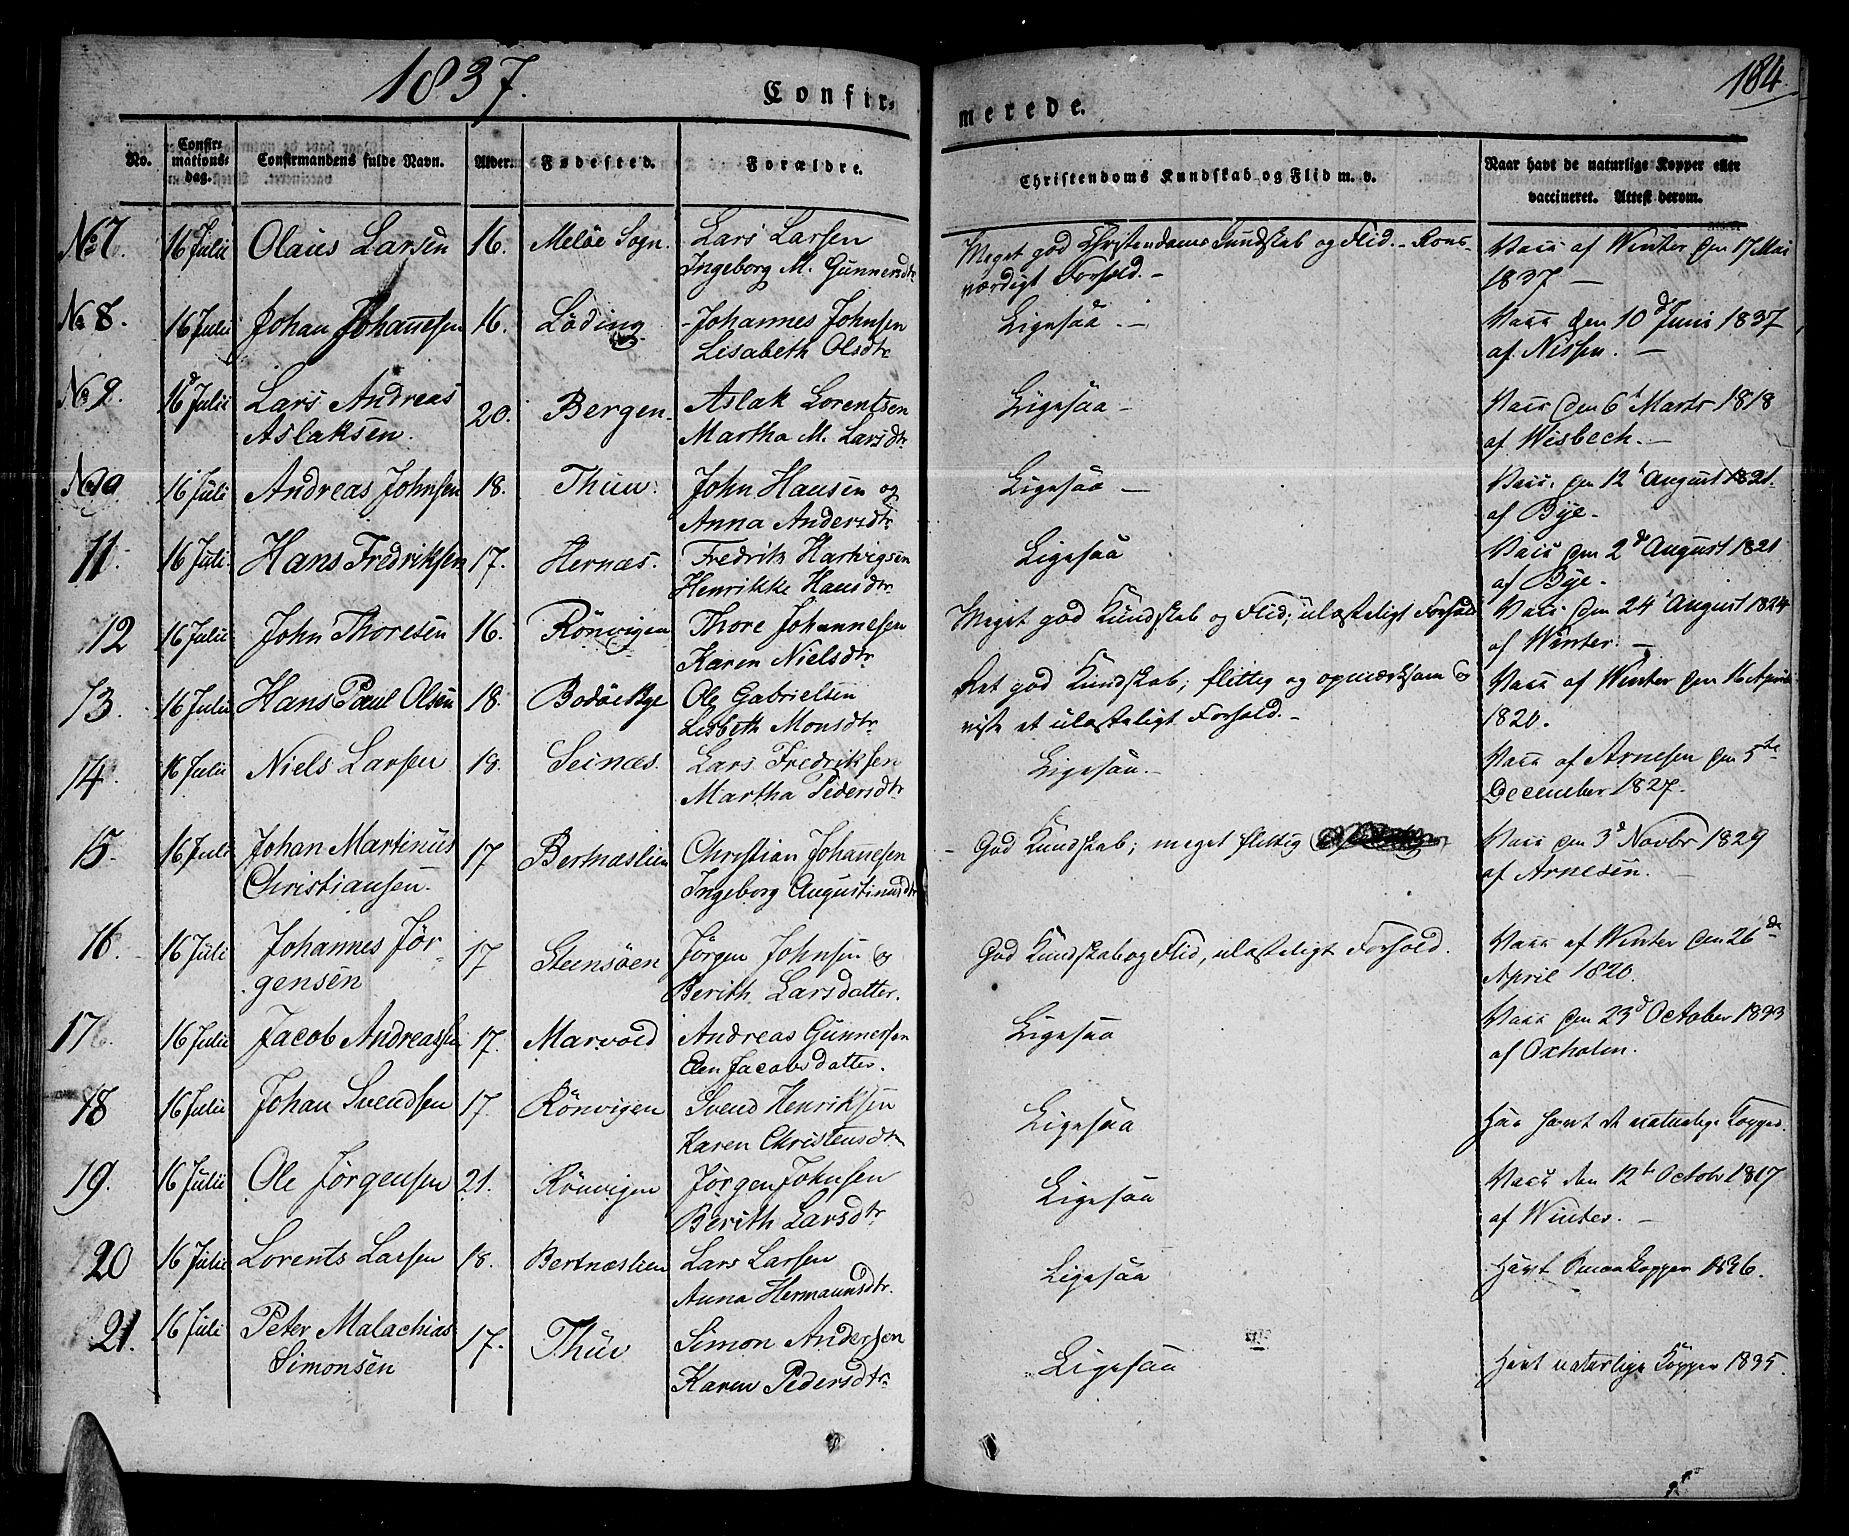 1837.
184
Confir-
merede.
No.
Confirmationsdag.
Confirmandens fulde Navn.
Alder.
Fødested.
Forældre.
Christendoms Kundskab og Flid m. v.
Naar havt de naturlige Kopper eller
vaccineret. Attest derom.
No 7. 16 Julii Olaus Larsen 16. Meløe Sogn. Lars Larsen Meget god Christendoms Kundskab og Flid. Vacc af Winter den 17 Mai
Ingeborg M. Gunnersdtr værdigt Forhold. 1837
No 8. 16 Julii Johan Johannesen 16. Löding Johannes Johnsen Ligesaa. Vacc den 10d Juni 1837
Lisabeth Olsdtr af Nissen.
No 9. 16 Julii Lars Andreas 20. Bergen Aslak Lorentsen Ligesaa Vacc den 6t Marts 1818
Aslaksen. Martha M. Larsdtr af Wisbech.
No 10 16 Juli Andreas Johnsen 18. Thuv. John Hansen og Ligesaa Vacc. den 12t August 1821.
Anna Andersdtr af Bye.
11. 16 Juli. Hans Fredriksen 17. Hernæs. Fredrik Hartvigsen Ligesaa Vacc den 2de August 1821
Henrikke Hansdtr af Bye.
12 16 Julii John Thoresen 16. Rönvigen Thore Johannesen Meget god Kundskab og Flid; ulasteligt Forhold Vacc den 24 August 1824
Karen Nielsdtr af Winter.
13. 16 Julii Hans Paul Olsen 18. Bodøe Bye Ole Gabrielsen Ret god Kundskab; flittig og opmærksom Vacc af Winter den 16 April
Lisbeth Monsdtr viste et ulasteligt Forhold. 1820.
14. 16 Julii Niels Larsen 18. Seines. Lars Fredriksen Ligesaa. Vacc af Arnesen den 5te
Martha Pedersdtr December 1827.
15. 16 Juli Johan Martinus 17 Bertnæslien Christian Johanesen God Kundskab; meget flittig Vacc den 3d Novbr 1829
Christiansen. Ingeborg Augustinusdtr af Arnesen.
16. 16 Juli Johannes Jör- 17 Steensöen Jörgen Johnsen og God Kundskab og Flid, ulasteligt Forhold. Vacc af Winter den 26de
gensen Berith Larsdatter. April 1820.
17 16 Julii Jacob Andreassen 17. Marvold Andreas Gunnersen Ligesaa Vacc den 23d October 1833
Jacobsdatter. af Oxholm.
18 16 Julii Johan Svendsen 17. Rönvigen Svend Henriksen Ligesaa Har havt de naturlige Kopper.
Karen Christensdtr
19. 16 Julii Ole Jörgensen 21. Rönvigen Jörgen Johnsen Ligesaa Vacc den 12t Octobr 1817
Berith Larsdtr. af Winter.
20 16 Julii Lorents Larsen 18. Bertnæslien Lars Larsen Ligesaa Havt Kopper 1836.
Anna Hermansdtr.
21. 16 Juli Peter Malachias 17. Thuv Simon Andersen Ligesaa Havt naturlige Kopper 1835.
Simonsen Karen Pedersdtr